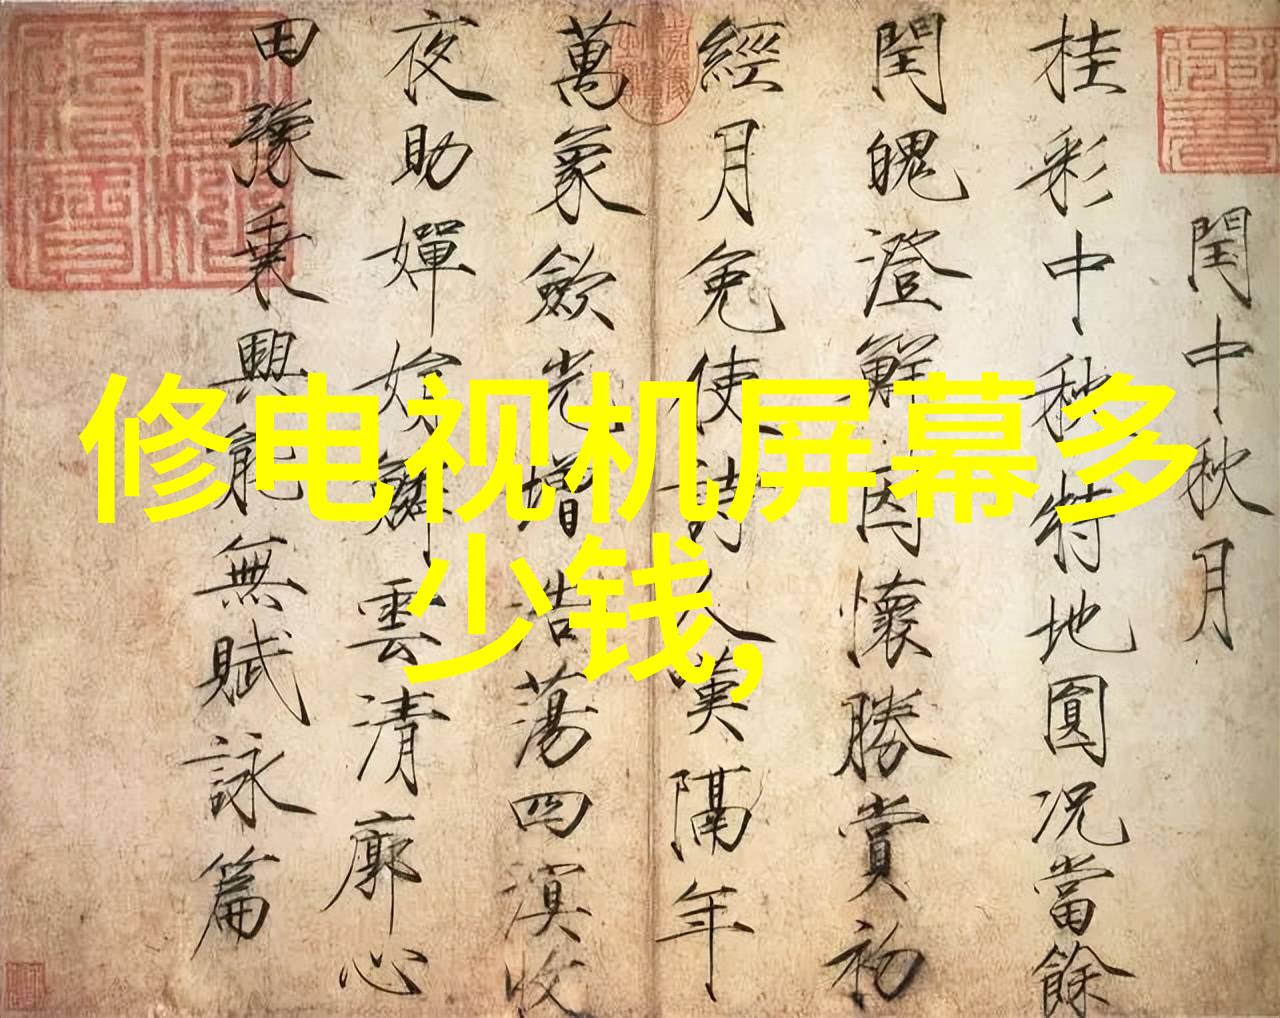 修电视机屏幕多
少钱,
閏中秋月
桂彩中秋特地圓況當餘
閏魄澄鮮因懷勝賞初
經月免使詩人嘆隔年
萬象歛光增浩蕩四溟收
夜助嬋娟鱗雲清廓心
田豫乗興能無賦詠篇